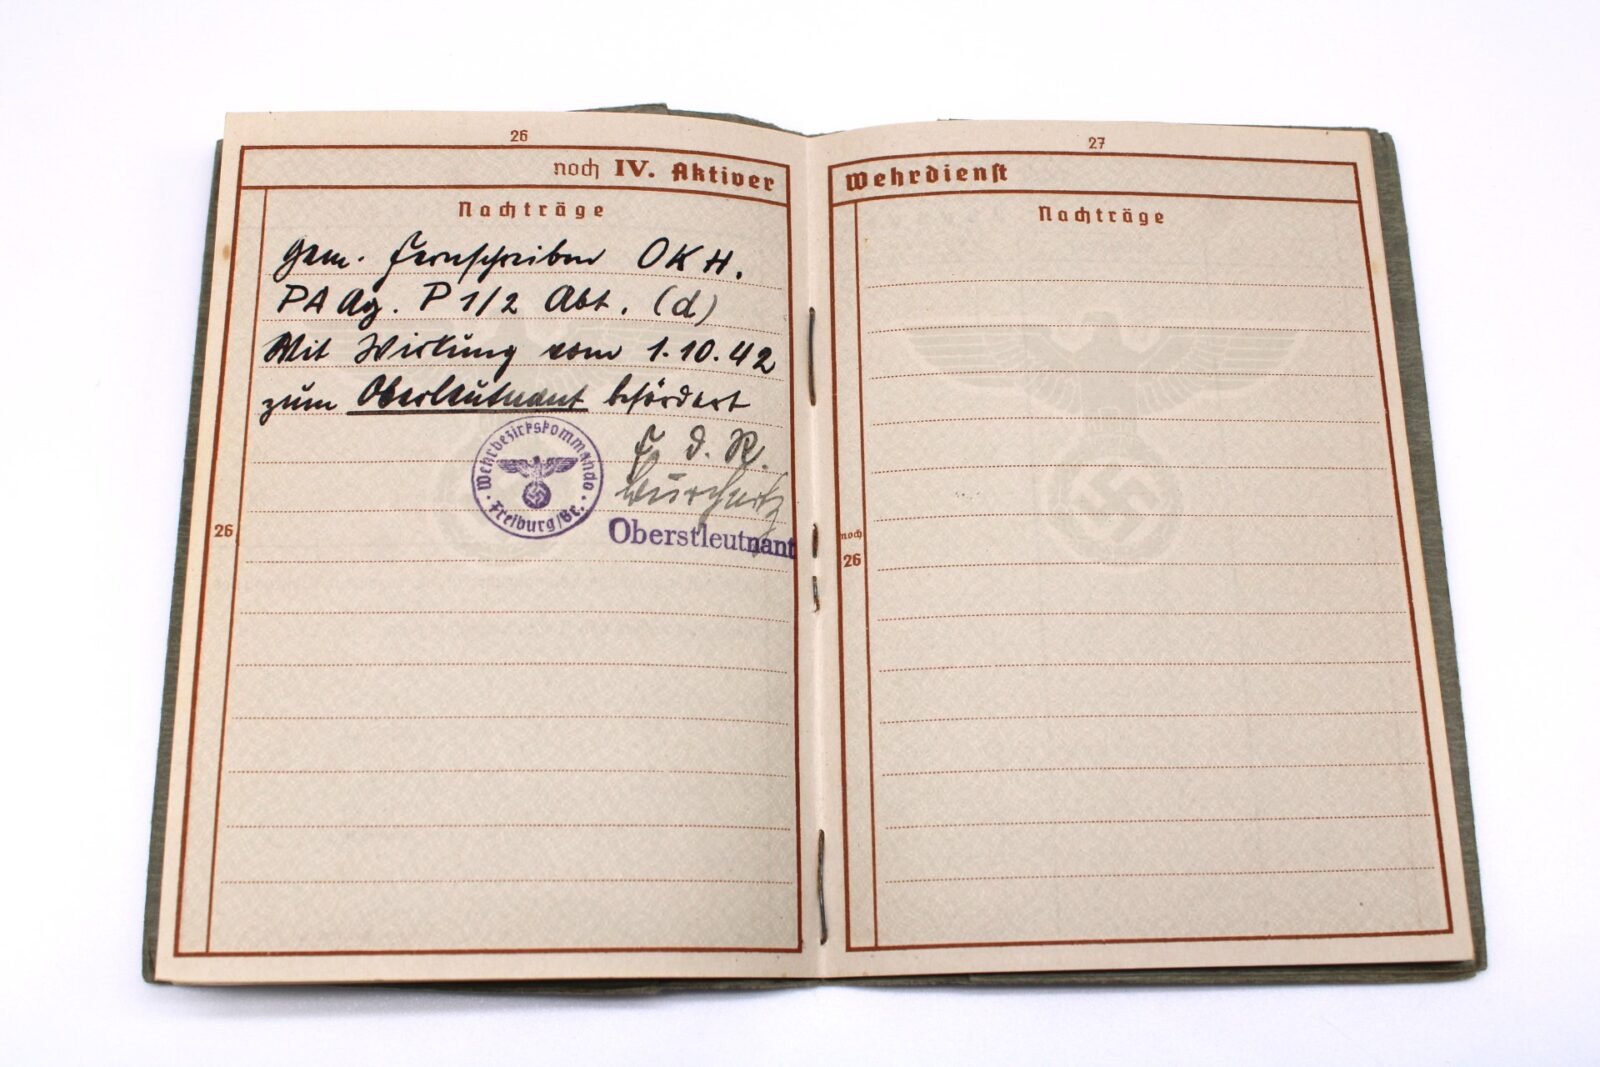 26
noch IV. Aktiver
Nachträge
Gem. Fernschreiben OKH.
PA Ag. P 1/2 Abt. (d)
Mit Wirkung vom 1.10.42
zum Oberleutnant befördert
F. d. R.
Wehrbezirkskommando
Freiburg/Br.
Oberstleutnant
26
27
Wehrdienst
Nachträge
noch
26